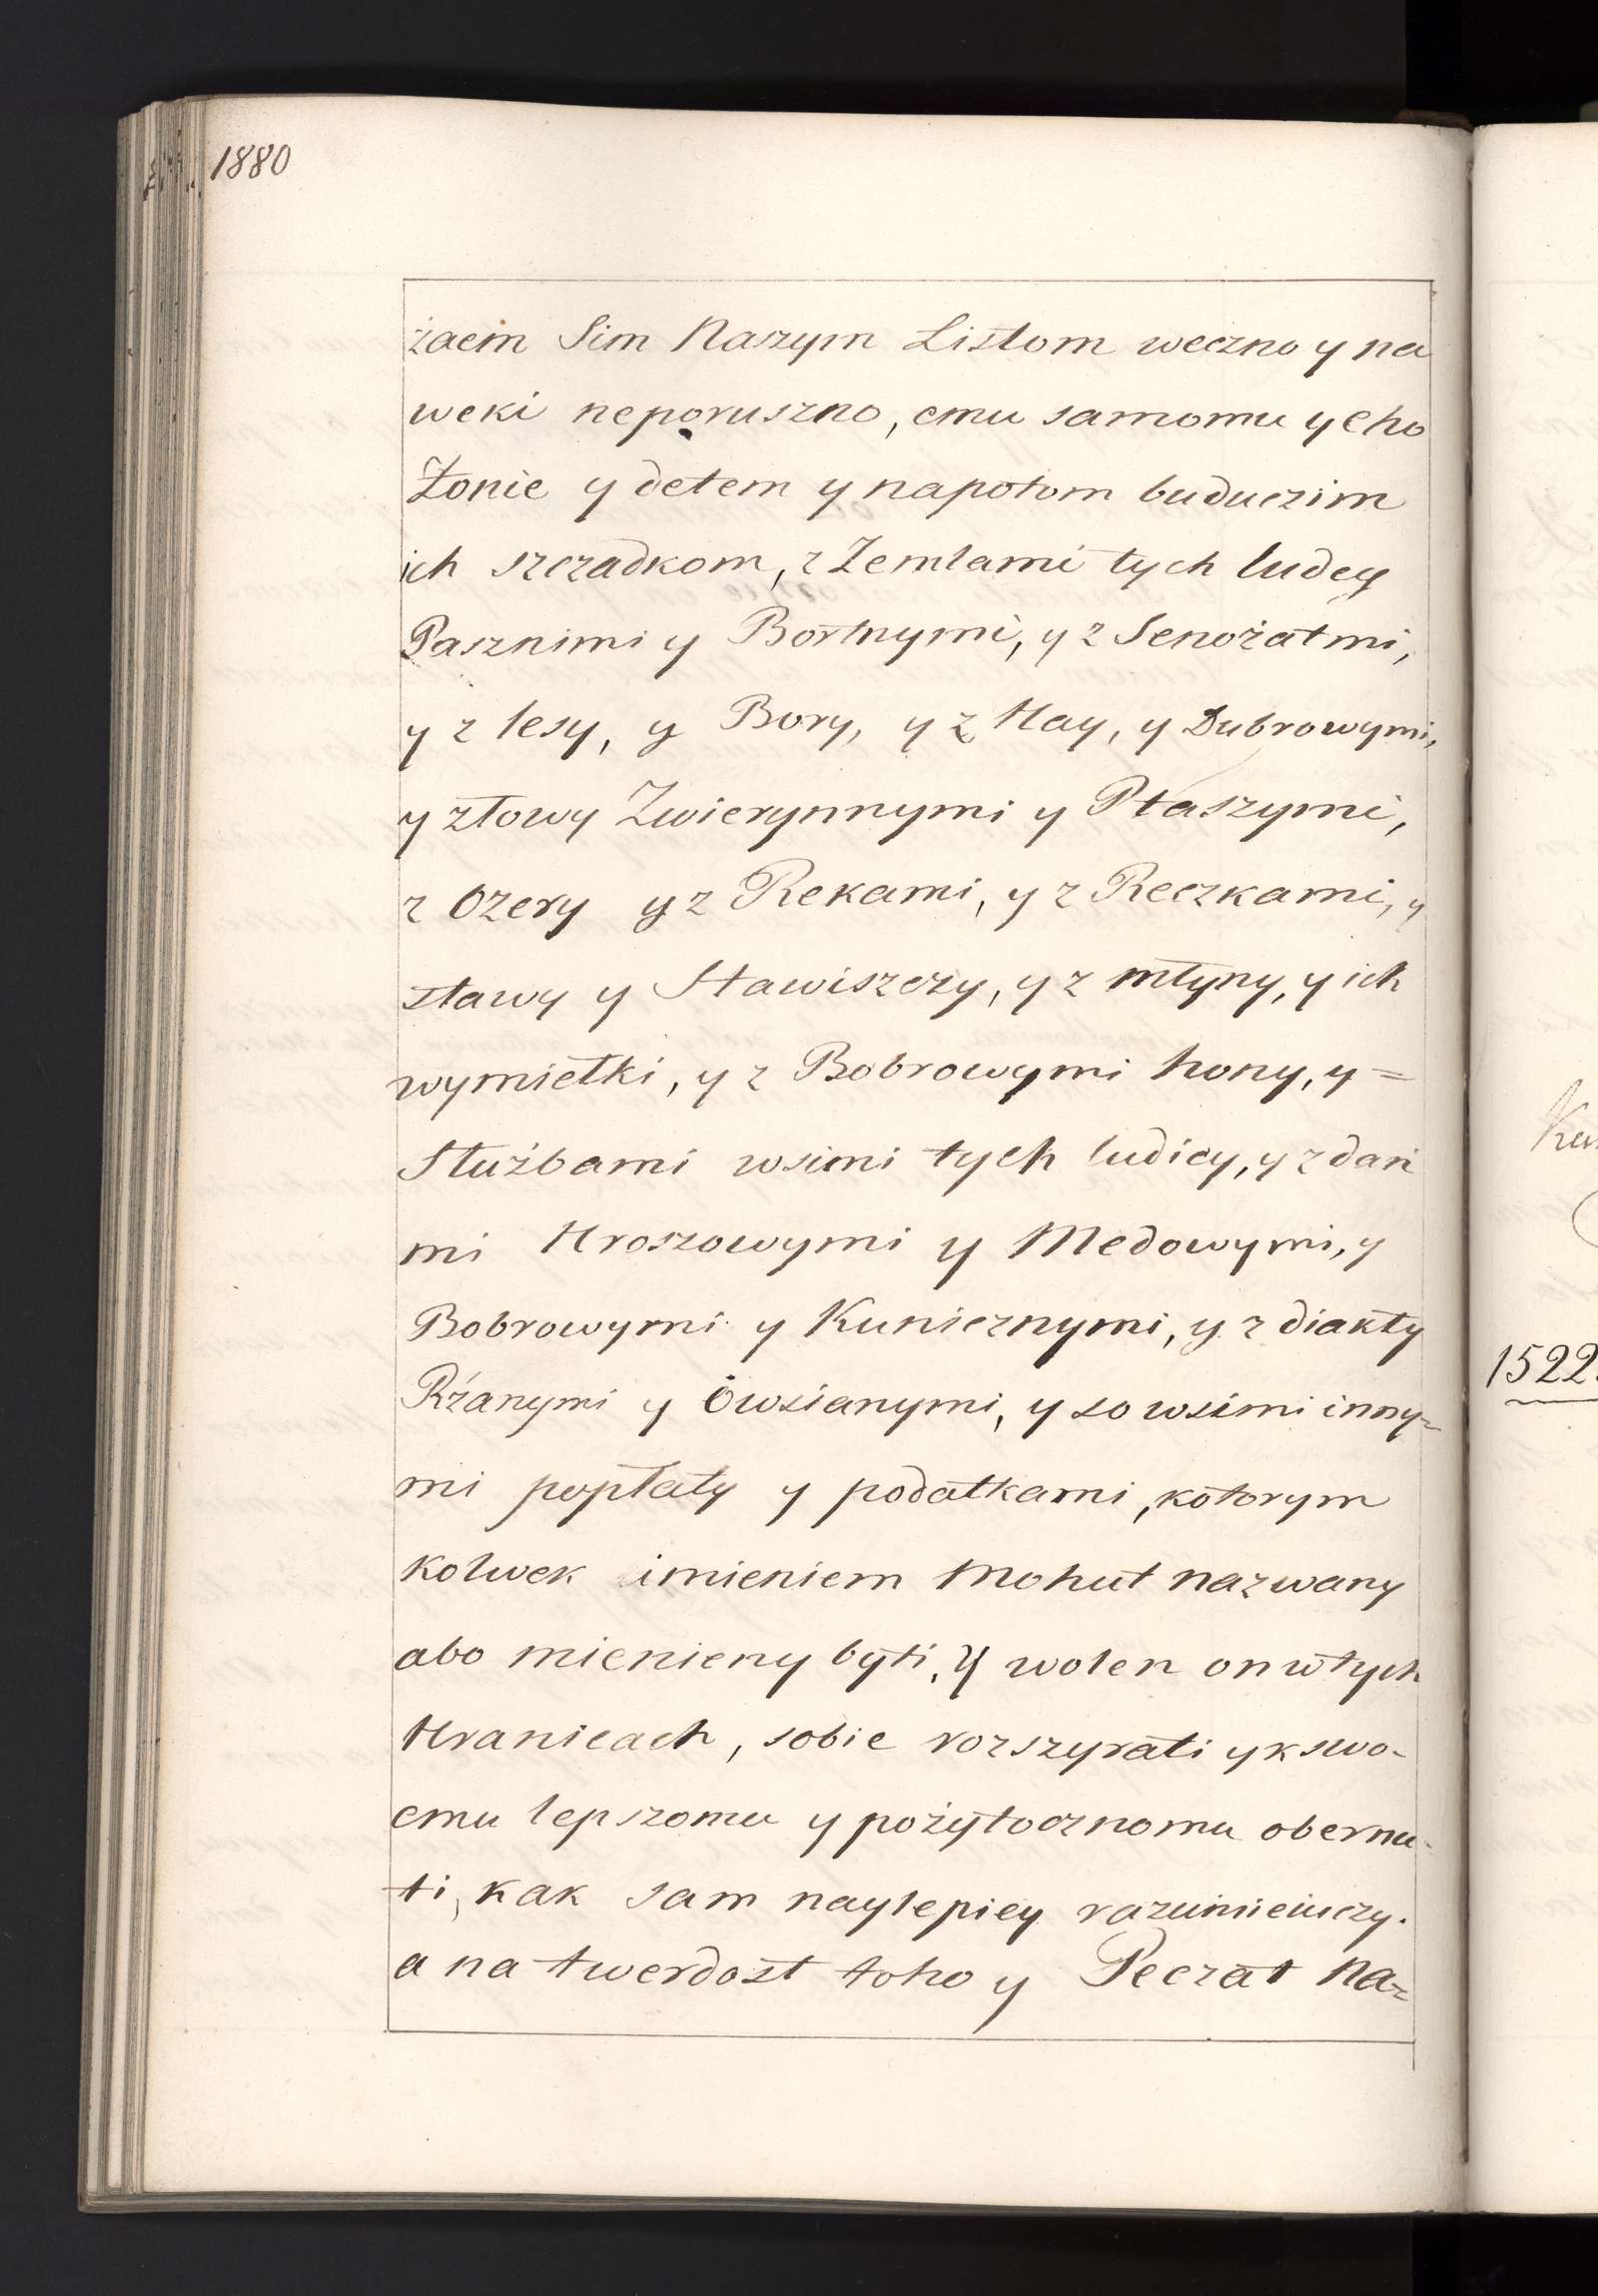 1880
żaem Sim Naszym Listom weczno y na
weki neporuszno, emu samomu y eho
Żonie y detem y napotom buduczim
ich szczadkom, z Zemlami tych ludey
Pasznimi y Bortnymi, y z Senożatmi,
y z lesy, y Bory, y z Hay, y Dubrowymi,
y złowy Zwierynnymi y Ptaszymi,
z Ozery y z Rekami, y z Reczkami, y
stawy y Stawiszczy, y z młyny, y ich
wymiełki, y z Bobrowymi hony, y =
Służbami wsimi tych ludiey, y z dań
mi Hroszowymi y Medowymi, y
Bobrowymi y Kunicznymi, y z diakły
Rżanymi y Owsianymi, y so wsimi inny-
mi popłaty y podatkami, kotorym
kolwek imieniem mohut nazwany
abo mienieny byti, Y wolen on w tych
Hranicach, sobie rozszyrati y k swo-
emu lepszomu y pożytocznomu obernu-
ti, kak sam naylepiey razumieiuczy.
a na twerdost toho y Peczat Na-
1522.